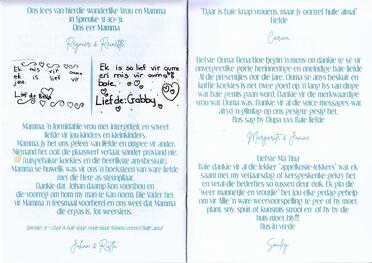 Ons lees van hierdie wonderlike vrou en Mamma
in Spreuke 31: 10-31.
Ons eer Mamma
Reynier & Reinette
Ek mis vir ouma
ek is lief vir
Liefde
Ek is so lief vir ouma
en mis vir ouma
baie.
Liefde: Gabby
Mamma 'n formidable vrou met interpriteit en soveel
liefde vir jou kinders en kleinkinders.
Mamma, jy het ons geleer van liefde en omgee vir ander.
Niemand het ooit die plaaswerf verlaat sonder proviand nie.
(tuisgebakte koekies en die heerlikste anysbeskuit).
Mamma se huwelik was vir ons 'n hoeksteen van ware liefde
met die Here as steunpilaar.
Dankie dat Johan daarop kon voortbou en
die voorreg om hom my man te kan noem. Elke vader het
vir Mamma 'n leesmaal voorberei en ons weet dat Mamma
die ergpas is. Tot weersiens.
Spreuke 31 - Daar is baie knap vroue maar Mamma oortref hulle almal
Johan & Rista
"Daar is baie knap vrouens, maar jy oortref hulle almal"
Liefde
Carina
Liefste Ouma Tiena Hoe begin 'n mens en dankie te sê vir
onvergeetlike goeie herinneringe en oneindige baie liefde
Al die presentjies oor die jare. Ouma se anys beskuit en
koffie koekies is net twee goed op 'n lang lys van dinge
wat baie gemis gaan word. Dankie vir die merkwaardige
vrou wat Ouma was. Dankie vir al die voice messages wat
altyd 'n glimlag op ons gesigte gesit het.
Rus sag by Oupa xxx Baie liefde
Margariet & Janine
Liefste Ma Tina
Baie dankie vir al die lekker "appelkosie-lekkers" wat ek
saam met my verjaarsdag of Kersgeskenke gekry het
en veral die bederfies so tussen deur ook. Ek glo die
"weer mannetjie en vroutjie" het jou elke dag gehelp om
vir Allie 'n ware weervoorspelling te gee of hy moet
plant, sny, spuit of kunsmis strooi en of hy by die
huis moet bly!!!
Rus in vrede